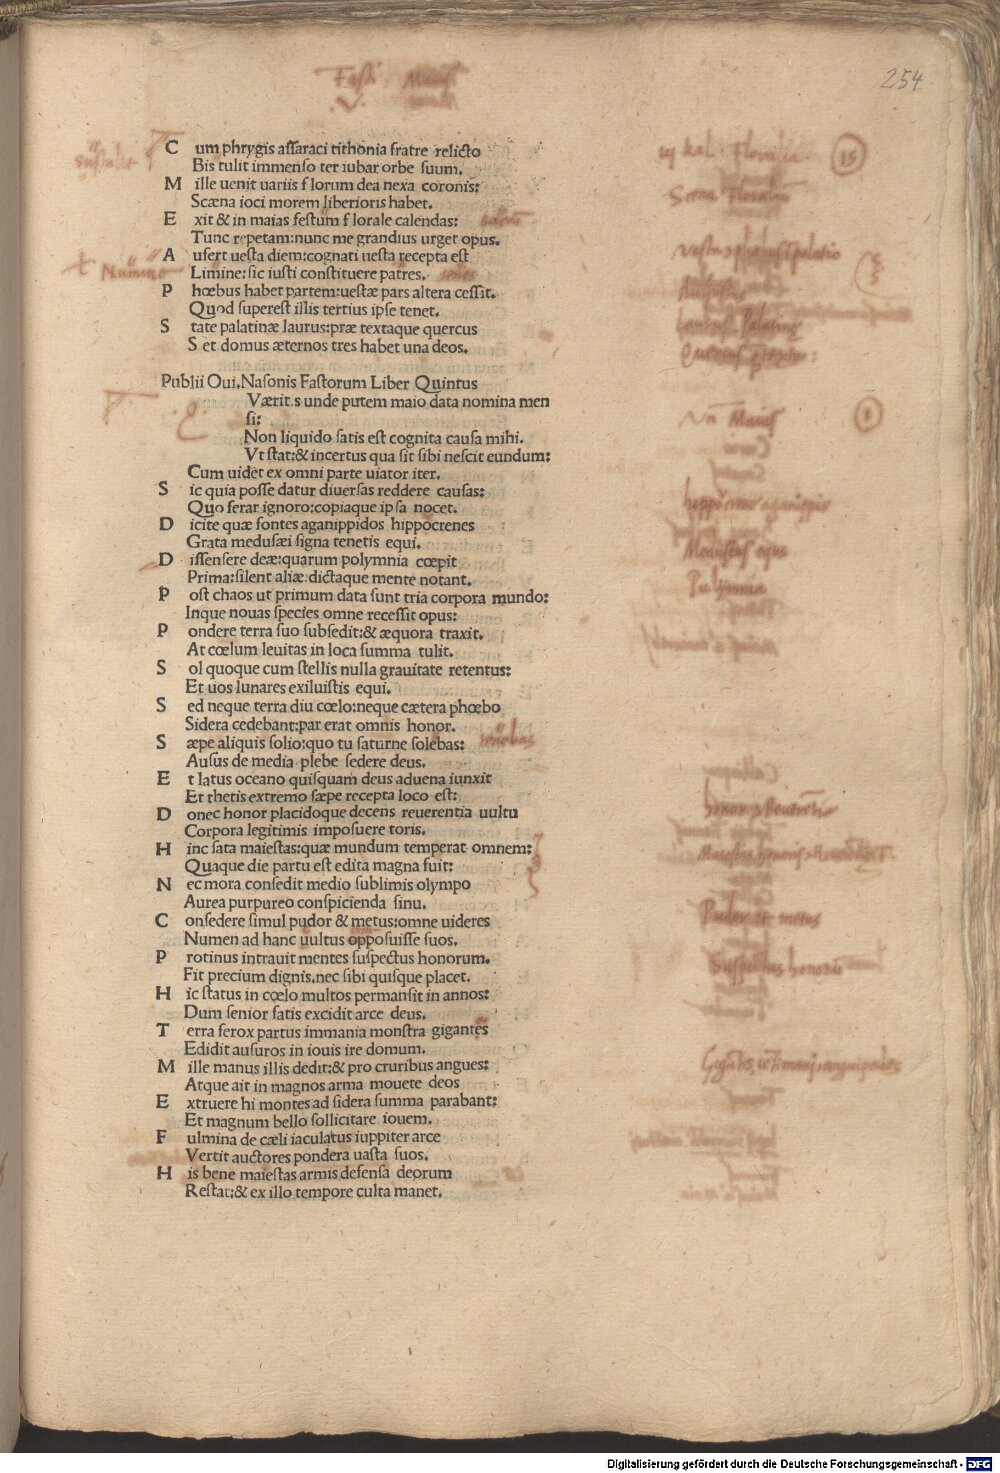 254
C um phrygis aſſaraci tithonia fratre relicto
Bis tulit immenſo ter iubar orbe ſuum.
M ille uenit uariis florum dea nexa coronis:
Scæna ioci morem liberioris habet.
E xit & in maias feſtum florale calendas:
Tunc repetam:nunc me grandius urget opus.
A ufert ueſta diem:cognati ueſta recepta eſt
Numine
Limine:ſic iuſti conſtituere patres.
P hœbus habet partem:ueſtæ pars altera ceſſit.
Quod ſupereſt illis tertius ipſe tenet.
S tate palatinæ laurus:præ textaque quercus
S et domus æternos tres habet una deos.
Publii Oui.Naſonis Faſtorum Liber Quintus
Værit.s unde putem maio data nomina men
ſi:
Non liquido ſatis eſt cognita cauſa mihi.
Vt ſtat:& incertus qua ſit ſibi neſcit eundum:
Cum uidet ex omni parte uiator iter.
S ic quia poſſe datur diuerſas reddere cauſas:
Quo ferar ignoro:copiaque ipſa nocet.
D icite quæ fontes aganippidos hippocrenes
Grata meduſæi ſigna tenetis equi.
D iſſenſere deæ:quarum polymnia cœpit
Prima:ſilent aliæ:dictaque mente notant.
P oſt chaos ut primum data ſunt tria corpora mundo:
Inque nouas ſpecies omne receſſit opus:
P ondere terra ſuo ſubſedit:& æquora traxit.
At cœlum leuitas in loca ſumma tulit.
S ol quoque cum ſtellis nulla grauitate retentus:
Et uos lunares exiluiſtis equi.
S ed neque terra diu cœlo:neque cætera phœbo
Sidera cedebant:par erat omnis honor.
S æpe aliquis ſolio:quo tu ſaturne ſolebas:
Auſus de media plebe ſedere deus.
E t latus oceano quiſquam deus aduena iunxit
Et thetis extremo ſæpe recepta loco eſt:
D onec honor placidoque decens reuerentia uultu
Corpora legitimis impoſuere toris.
H inc ſata maieſtas:quæ mundum temperat omnem:
Quaque die partu eſt edita magna fuit:
N ec mora conſedit medio ſublimis olympo
Aurea purpureo conſpicienda ſinu.
C onſedere ſimul pudor & metus:omne uideres
Numen ad hanc uultus oppoſuiſſe ſuos.
P rotinus intrauit mentes ſuſpectus honorum.
Fit precium dignis.nec ſibi quiſque placet.
H ic ſtatus in cœlo multos permanſit in annos:
Dum ſenior fatis excidit arce deus.
T erra ferox partus immania monſtra gigantes
Edidit auſuros in iouis ire domum.
M ille manus illis dedit:& pro cruribus angues:
Atque ait in magnos arma mouete deos
E xtruere hi montes ad ſidera ſumma parabant:
Et magnum bello ſollicitare iouem.
F ulmina de cæli iaculatus iuppiter arce
Vertit auctores pondera uaſta ſuos.
H is bene maieſtas armis defenſa deorum
Reſtat:& ex illo tempore culta manet.
Pudor et metus
Digitalisierung gefördert durch die Deutsche Forschungsgemeinschaft - DFG